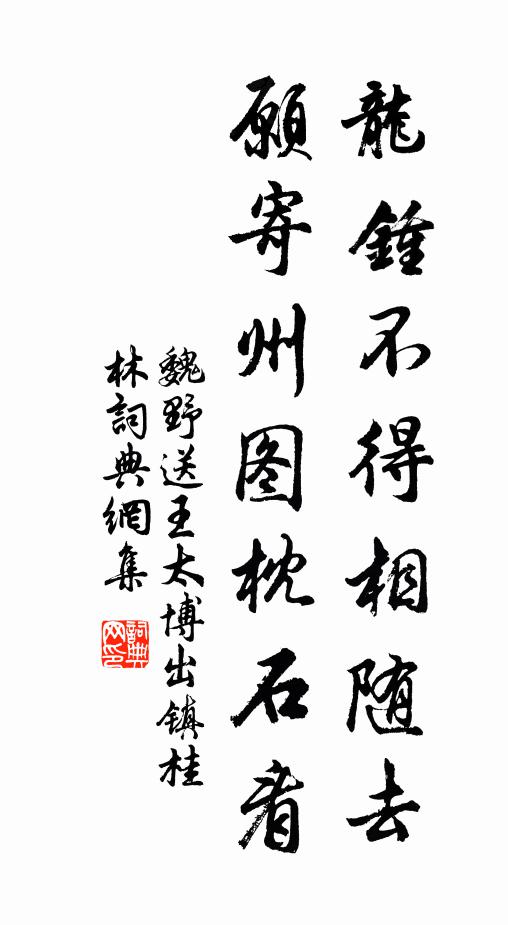 龍鍾不得相随去
願寄州图枕石看
魏野送王太博出镇桂
林詞典網集
詞典网印